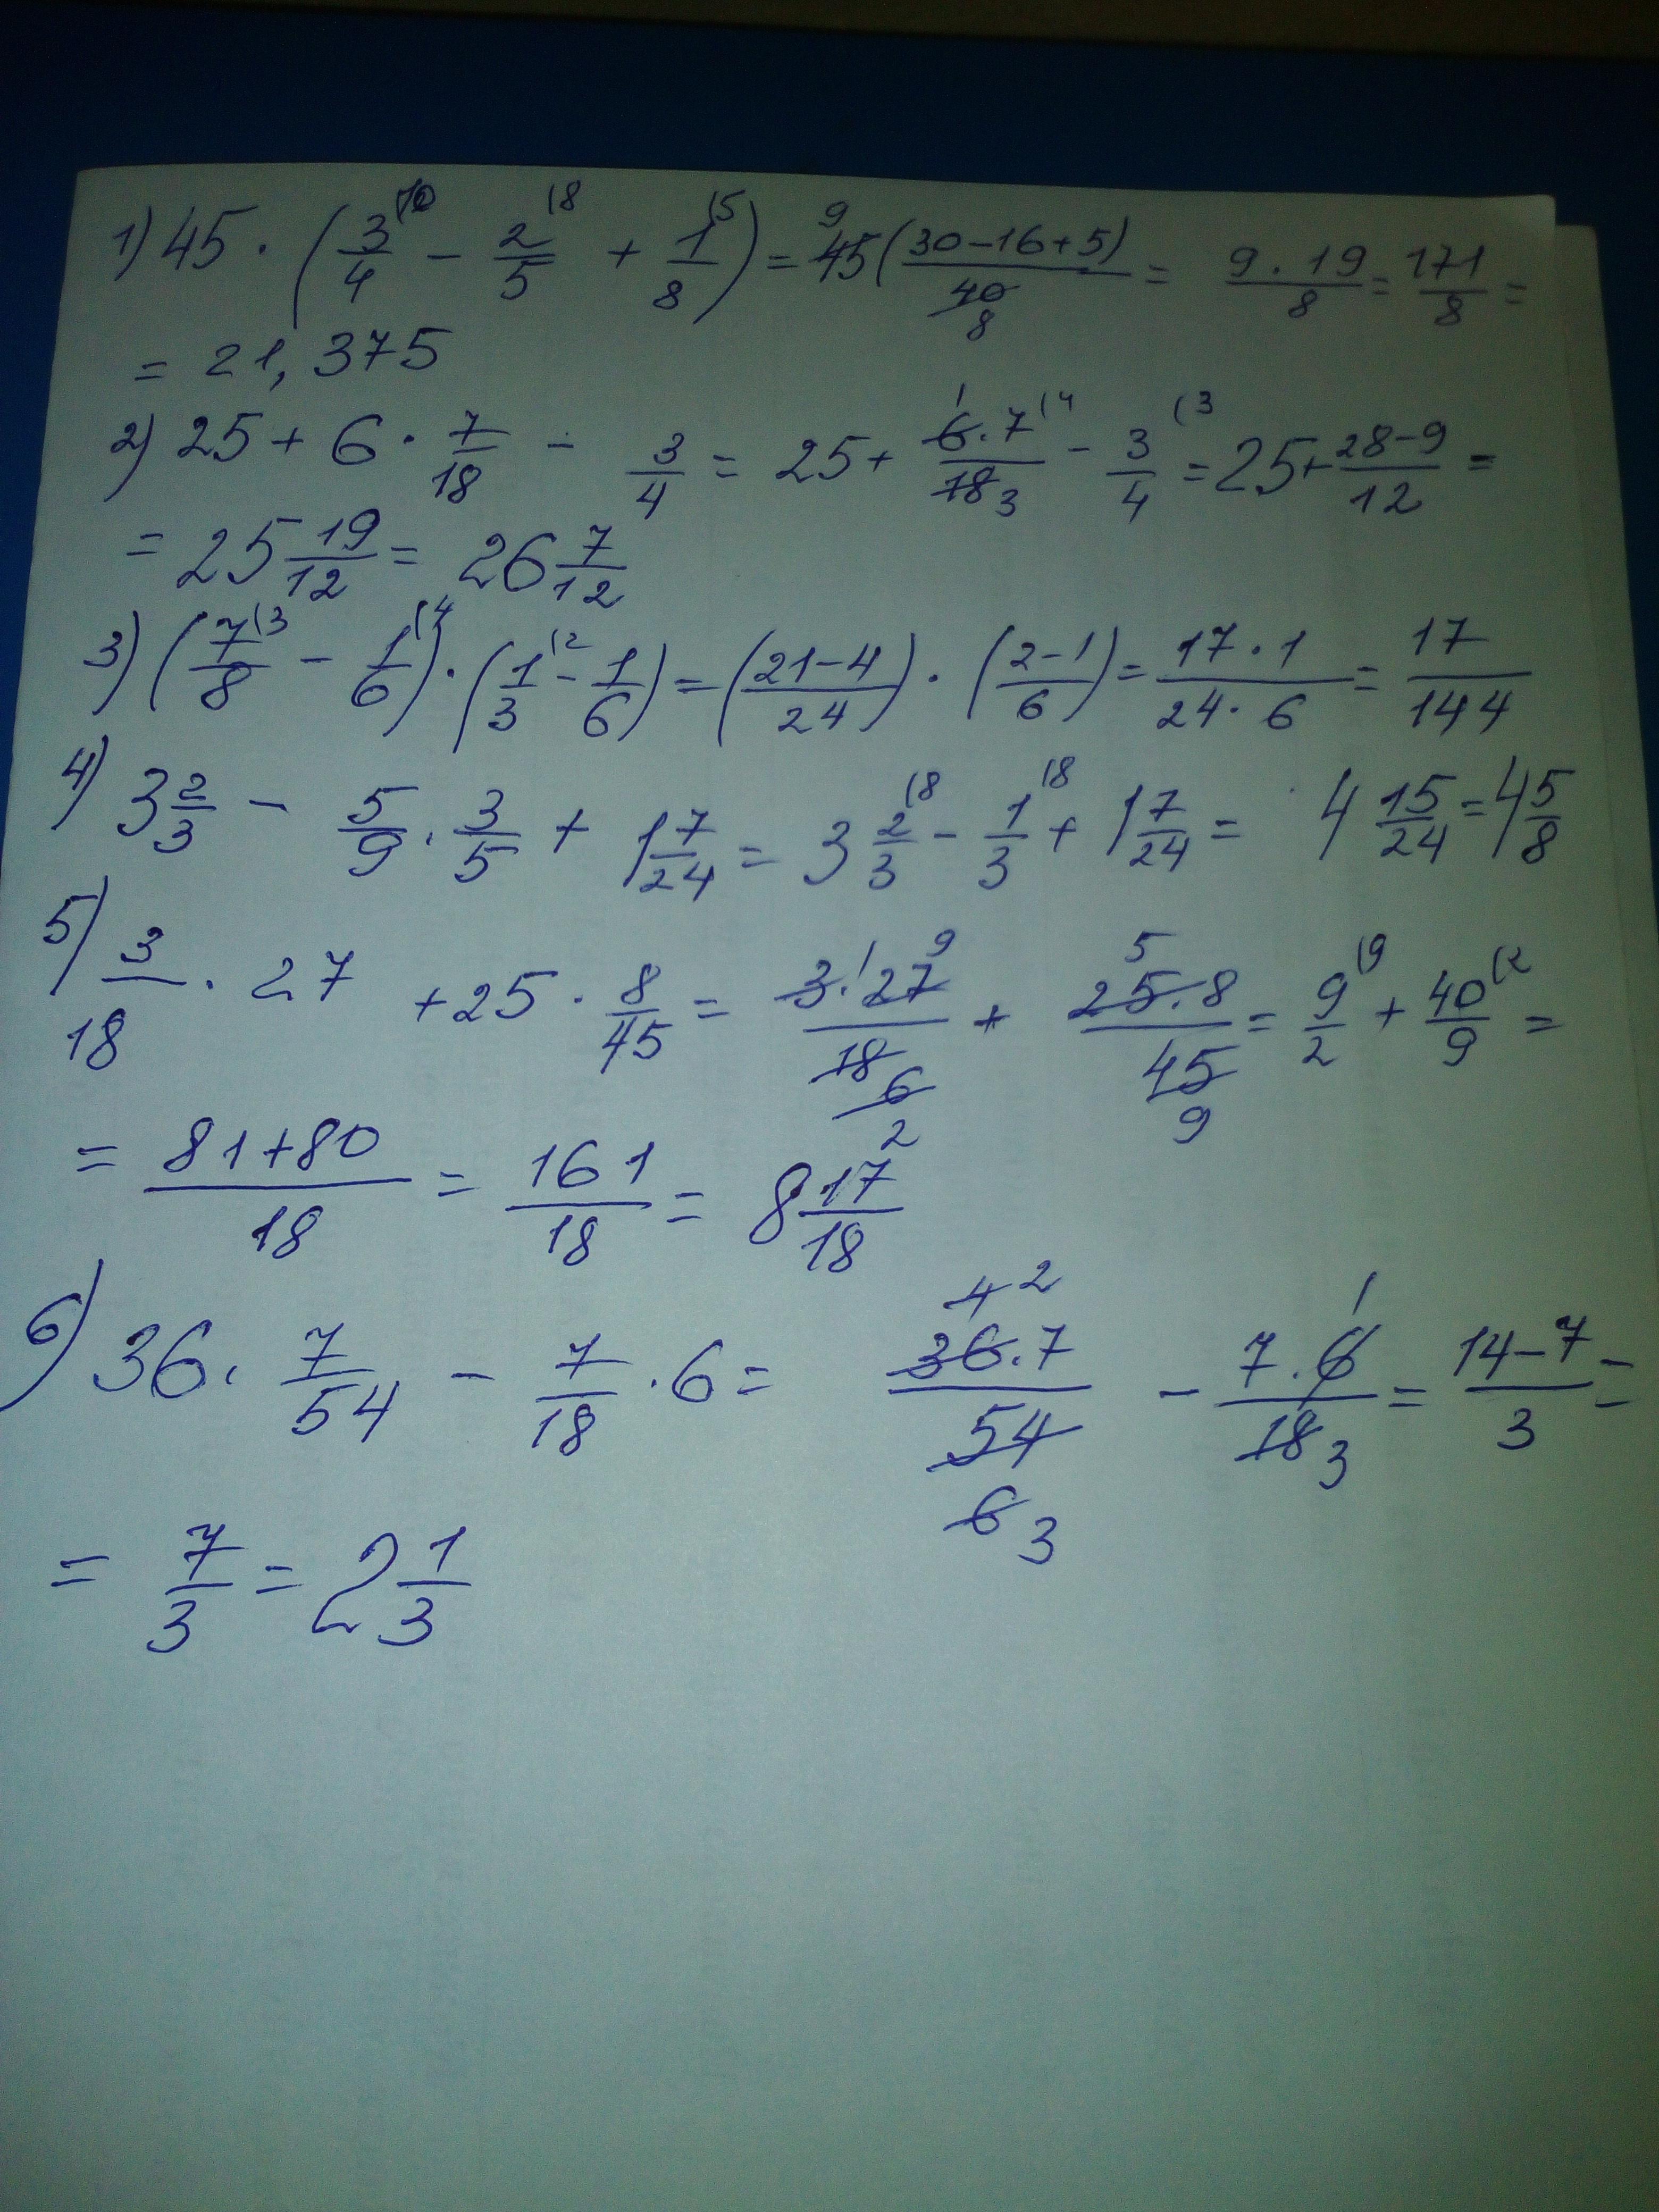 1) 45 · (3/4 (10 - 2/5 (8 + 1/8 (5) = 45 9 ((30-16+5)/40 8) = (9 · 19)/8 = 171/8 =
= 21,375
2) 25 + 6 · 7/18 - 3/4 = 25 + (6 1 · 7)/(18 3) (4 - 3/4 (3 = 25 + (28-9)/12 =
= 25 19/12 = 26 7/12
3) (7/8 (3 - 1/6 (4) · (1/3 (2 - 1/6) = ((21-4)/24) · ((2-1)/6) = (17 · 1)/(24 · 6) = 17/144
4) 3 2/3 - 5/9 · 3/5 + 1 7/24 = 3 2/3 (8 - 1/3 (8 + 1 7/24 = 4 15/24 = 4 5/8
5) 3/18 · 27 + 25 · 8/45 = (3 1 · 27 9)/(18 6 2) + (25 5 · 8)/(45 9) = 9/2 (9 + 40/9 (2 =
= (81+80)/18 = 161/18 = 8 17/18
6) 36 · 7/54 - 7/18 · 6 = (36 4 2 · 7)/(54 6 3) - (7 · 6 1)/(18 3) = (14-7)/3 =
= 7/3 = 2 1/3